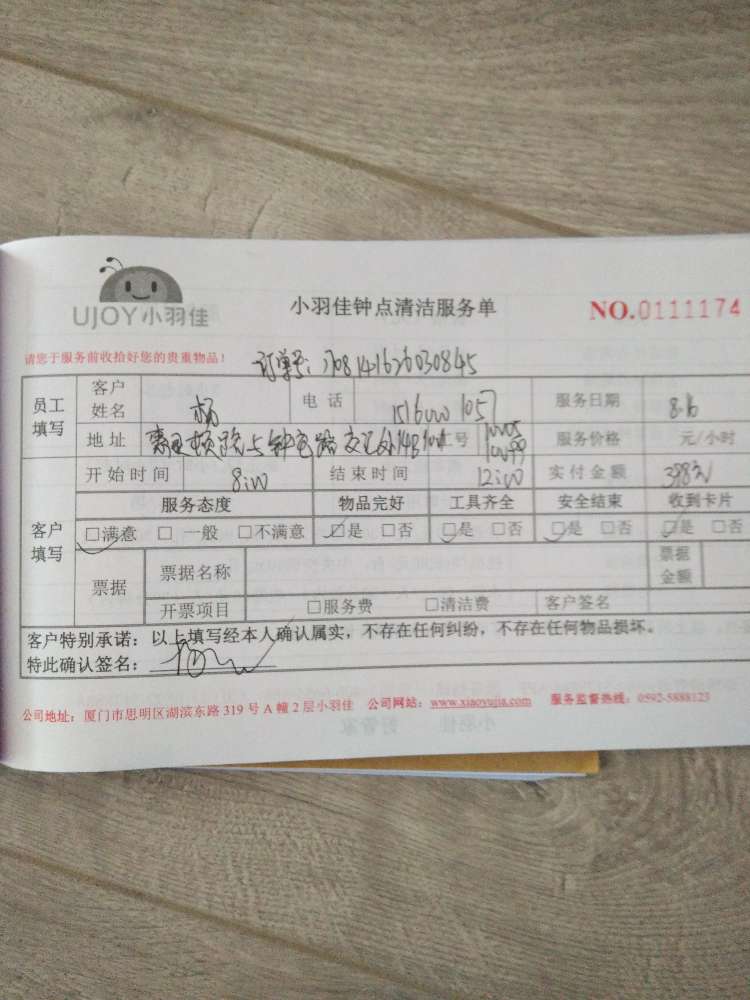 UJOY小羽佳
小羽佳钟点清洁服务单
NO.0111174
请您于服务前收拾好您的贵重物品!
订单号: 1708141626030845
员工填写 客户姓名 杨 电话 15160001057 服务日期 8.16
地址 路与钟宅路交汇处 工号 10005 10099 服务价格 元/小时
客户填写 开始时间 8:00 结束时间 12:00 实付金额 398元
服务态度 物品完好 工具齐全 安全结束 收到卡片
□满意 □一般 □不满意 □是 □否 □是 □否 □是 □否 □是 □否
票据 票据名称 票据金额
开票项目 □服务费 □清洁费 客户签名
客户特别承诺:以上填写经本人确认属实,不存在任何纠纷,不存在任何物品损坏。
特此确认签名:
公司地址:厦门市思明区湖滨东路 319 号 A 幢 2 层小羽佳 公司网站:www.xiaoyujia.com 服务监督热线:0592-5888123